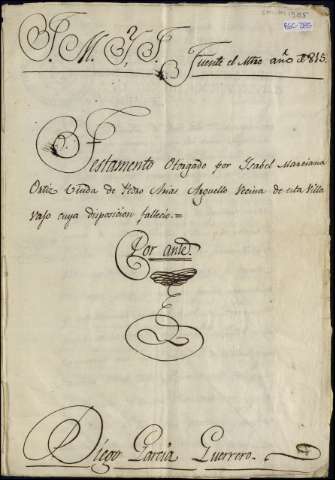 J. M. Y J.
Fuente el Mtre año d 1815
Testamento Otorgado por Isabel Marciana
Ortiz Viuda de Pedro Arias Arguello Vecina de esta Villa
vajo cuya disposicion fallecio.=
Por ante.
Diego Garcia Guerrero.